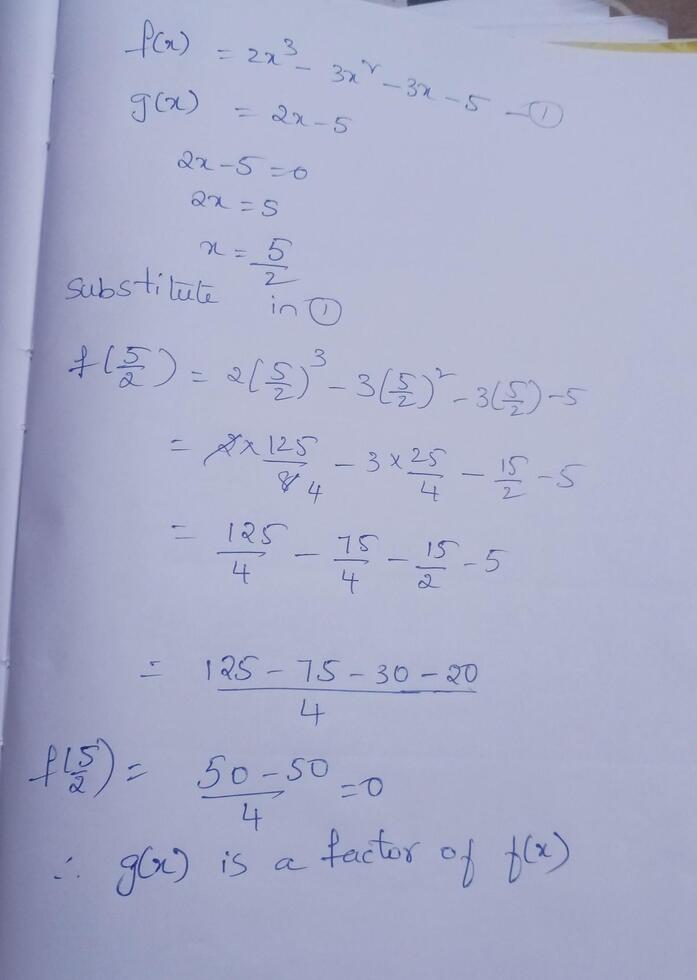 f(x) = 2x³ - 3x² - 3x - 5 - ①
g(x) = 2x - 5
2x - 5 = 0
2x = 5
x = 5/2
substitute in ①
f(5/2) = 2(5/2)³ - 3(5/2)² - 3(5/2) - 5
= 2 × 125/8 4 - 3 × 25/4 - 15/2 - 5
= 125/4 - 75/4 - 15/2 - 5
= 125 - 75 - 30 - 20/4
f(5/2) = 50 - 50/4 = 0
∴ g(x) is a factor of f(x)